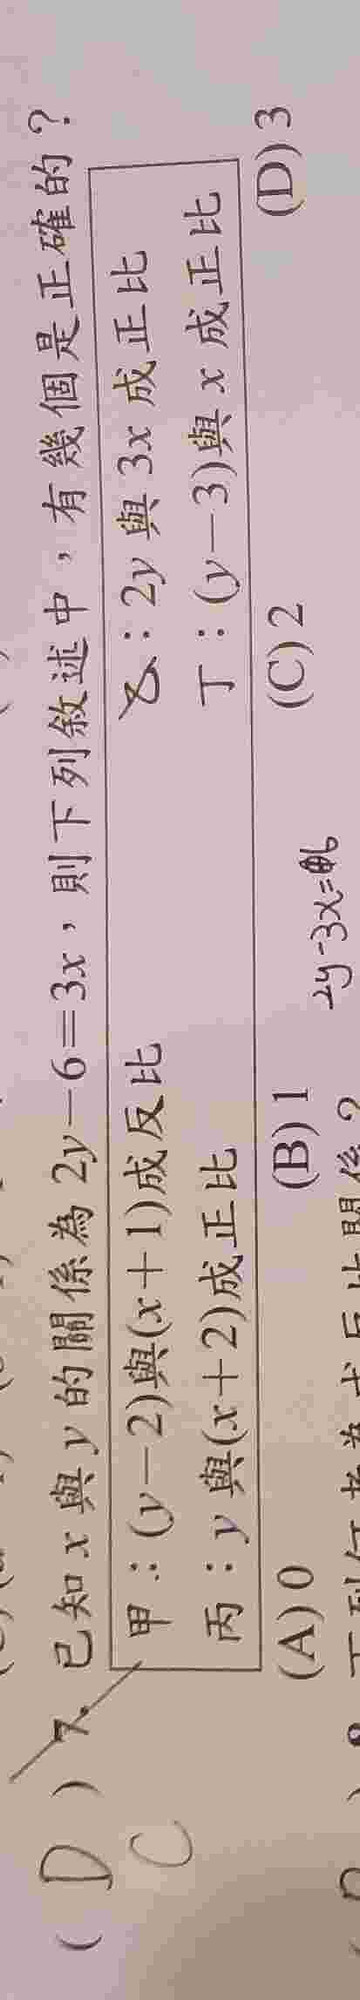 ( D ) 7. 已知 x 與 y 的關係為 2y－6＝3x，則下列敘述中，有幾個是正確的？
C
甲：(y－2)與(x＋1)成反比 乙：2y 與 3x 成正比
丙：y 與(x＋2)成正比 丁：(y－3)與 x 成正比
(A) 0 (B) 1 (C) 2 (D) 3
2y-3x=6